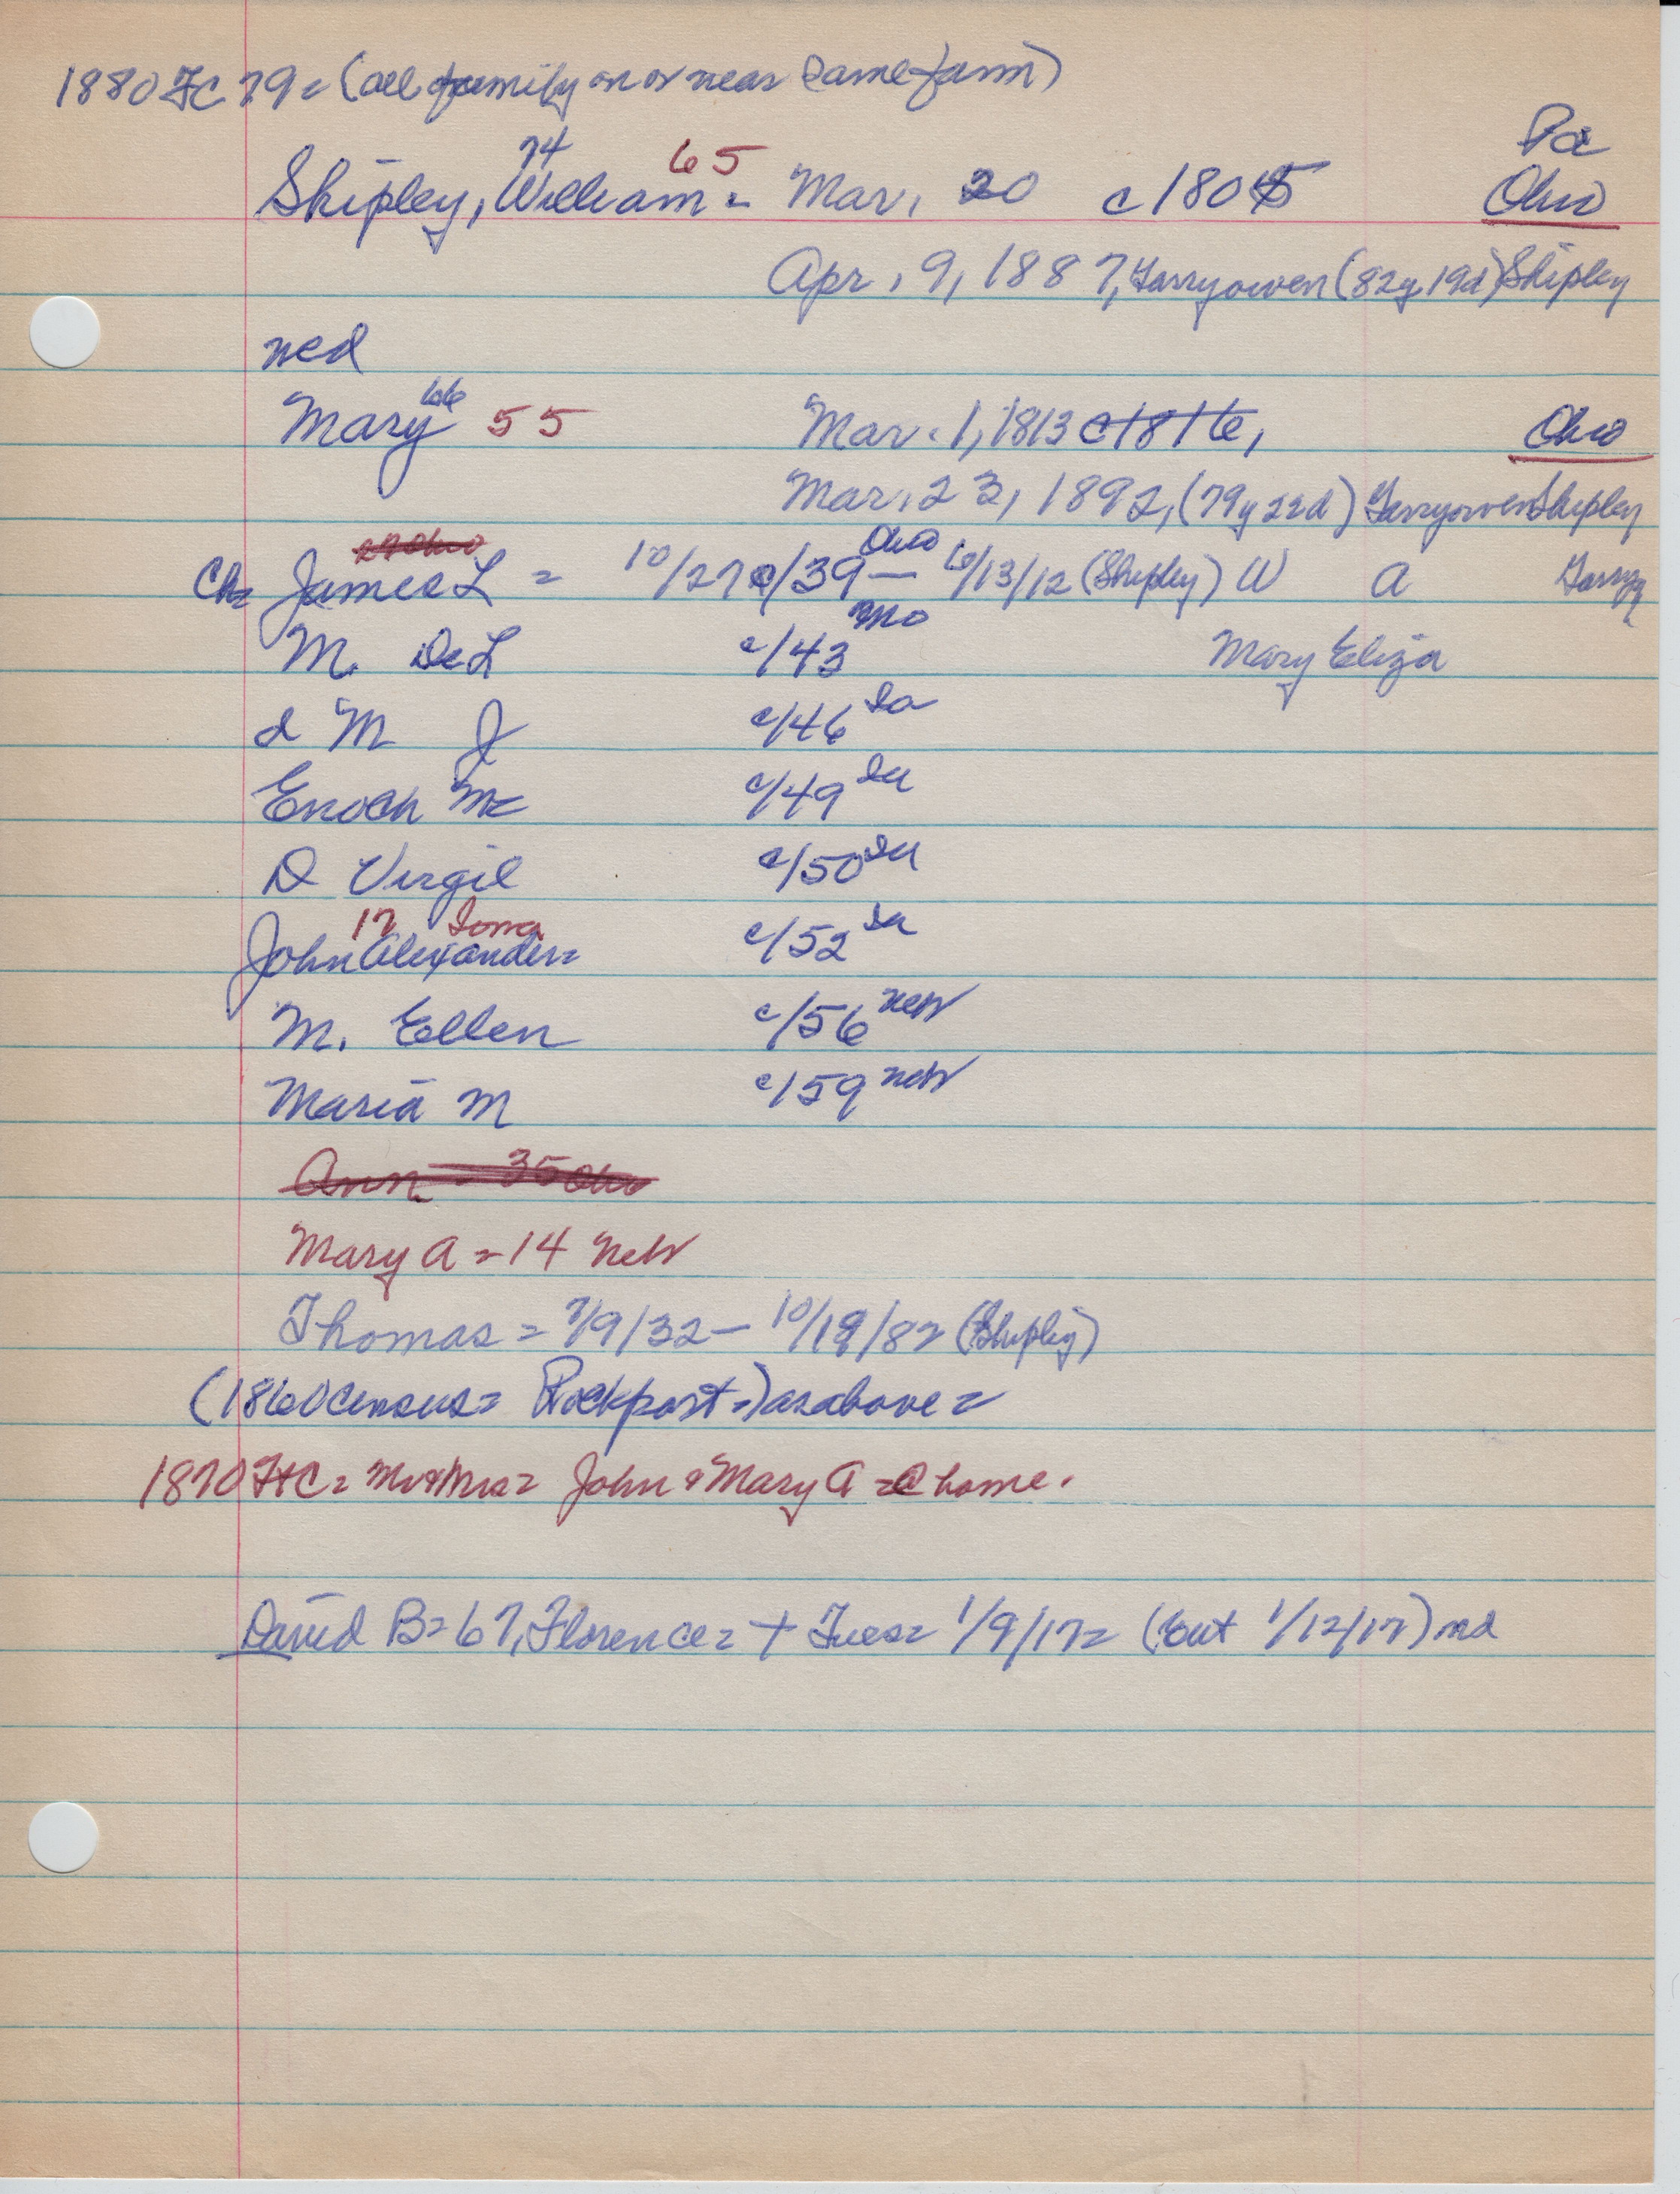 1880 FC 79= (all family on or near same farm)
Pa
74 65
Shipley, William = Mar. 20 c 1805 Ohio
Apr. 9, 1887, Garryowen (82y 19d) Shipley
ned
66
Mary 55 Mar. 1, 1813 c1816, Ohio
Mar. 23, 1892, (79y 22d) Garryowen Shipley
29 Ohio Ohio
Ch= James L = 10/27/39 — 10/13/12 (Shipley) W A Garry
Mo
M. DeL c/43 Mary Eliza
d M J c/46 Ia
Enoch Mc c/49 Ia
D Virgil c/50 Ia
17 Iowa
John Alexander= c/52 Ia
M. Ellen c/56 Neb
Maria M c/59 Neb
Ann - 35 Ohio
Mary A = 14 Neb
Thomas = 7/9/32 — 10/19/82 (Shipley)
(1860 census= Rockport=) as above =
1870 FC= Mr & Mrs= John & Mary A =@ home.
David B= 67, Florence= + Tues= 1/9/17= (out 1/12/17)